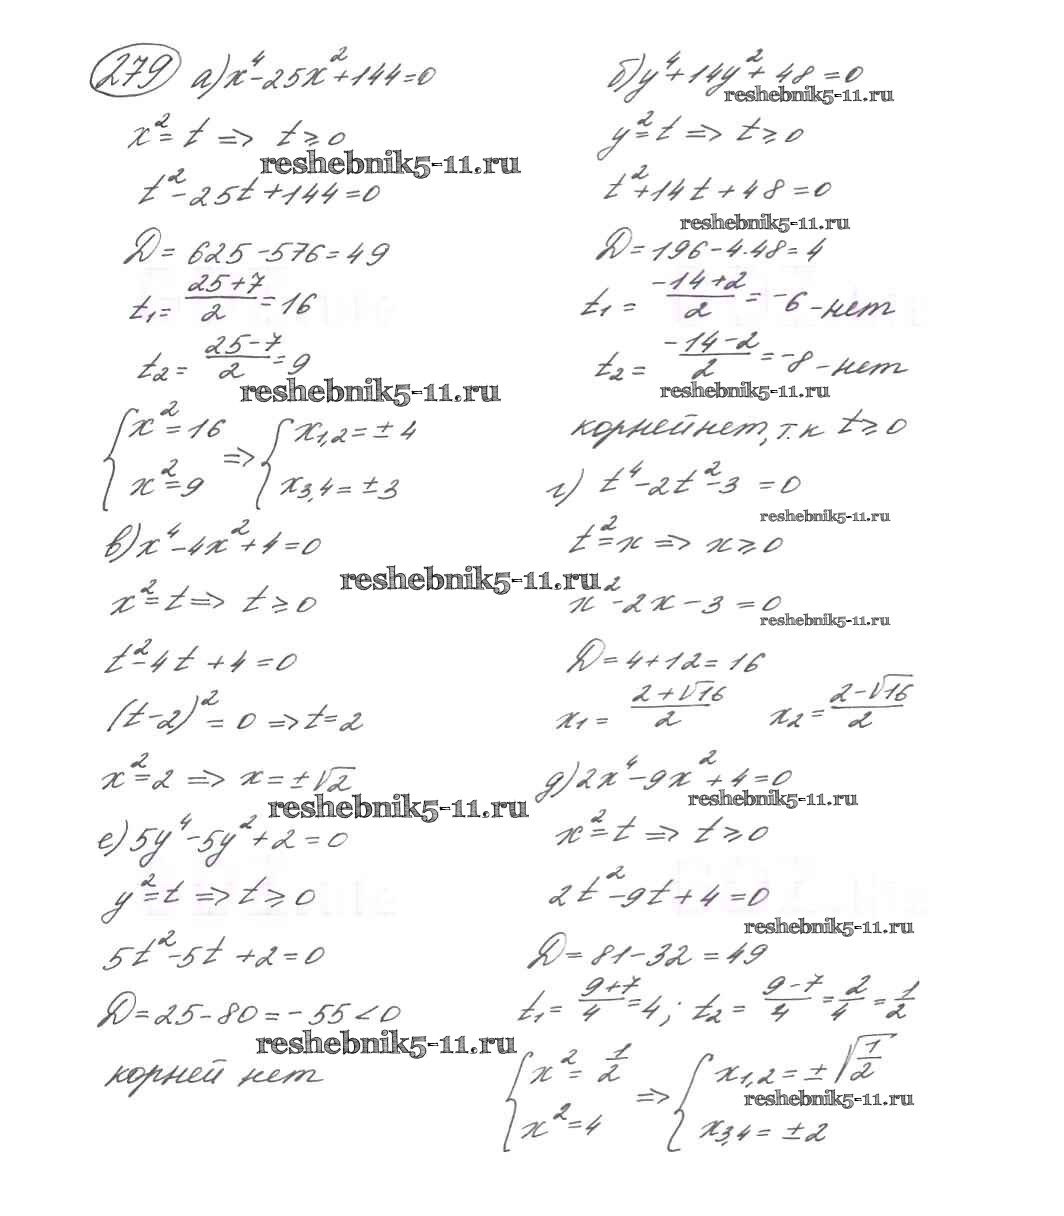 279 а) x⁴-25x²+144=0
x²=t => t≥0
reshebnik5-11.ru
t²-25t+144=0
D=625-576=49
t₁=(25+7)/2=16
t₂=(25-7)/2=9
reshebnik5-11.ru
{x²=16 => {x₁,₂=±4
x²=9 x₃,₄=±3
в) x⁴-4x²+4=0
reshebnik5-11.ru
x²=t => t≥0
t²-4t+4=0
(t-2)²=0 => t=2
x²=2 => x=±√2
reshebnik5-11.ru
е) 5y⁴-5y²+2=0
y²=t => t≥0
5t²-5t+2=0
D=25-80=-55<0
reshebnik5-11.ru
корней нет
б) y⁴+14y²+48=0
reshebnik5-11.ru
y²=t => t≥0
t²+14t+48=0
reshebnik5-11.ru
D=196-4·48=4
t₁=(-14+2)/2=-6-нет
t₂=(-14-2)/2=-8-нет
reshebnik5-11.ru
корней нет, т.к t≥0
г) t⁴-2t²-3=0
reshebnik5-11.ru
t²=x => x≥0
x²-2x-3=0
reshebnik5-11.ru
D=4+12=16
x₁=(2+√16)/2 x₂=(2-√16)/2
д) 2x⁴-9x²+4=0
reshebnik5-11.ru
x²=t => t≥0
2t²-9t+4=0
reshebnik5-11.ru
D=81-32=49
t₁=(9+7)/4=4; t₂=(9-7)/4=2/4=1/2
{x²=1/2 => {x₁,₂=±√(1/2)
reshebnik5-11.ru
x²=4 x₃,₄=±2